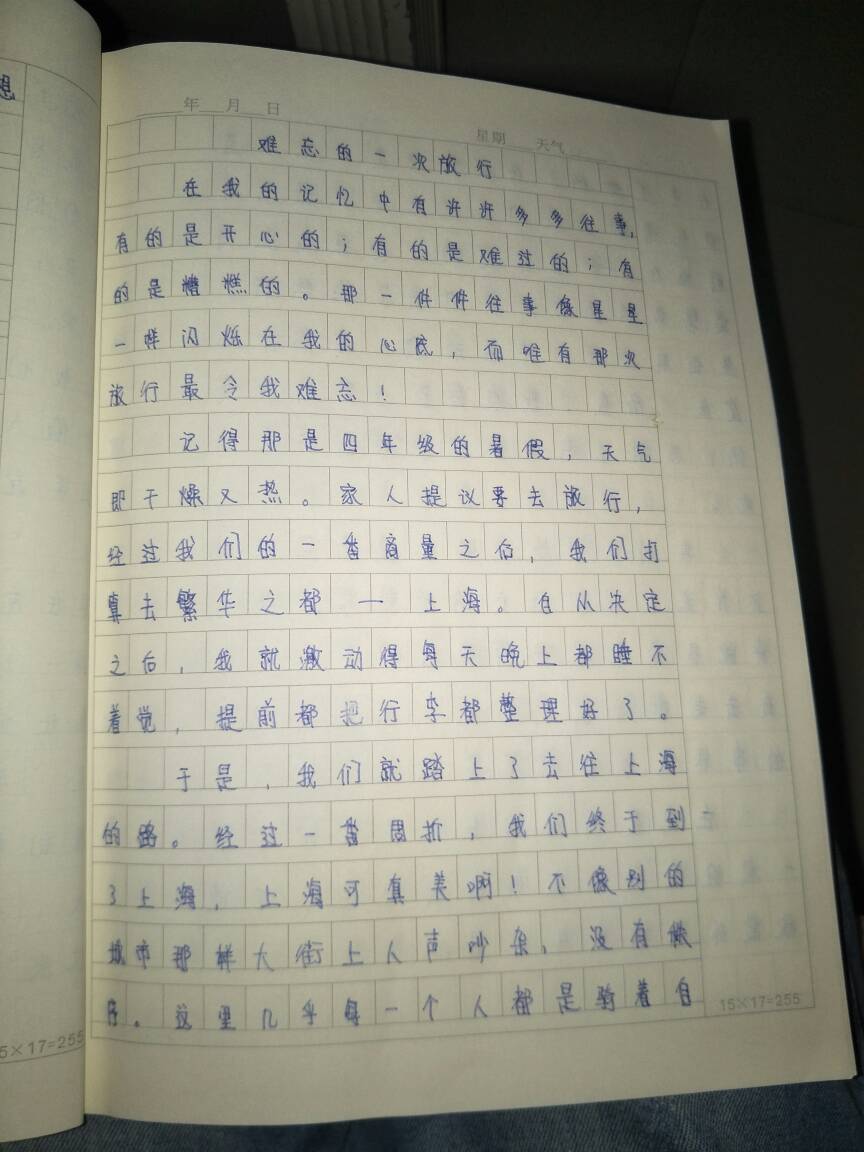 想
年 月 日
星期 天气
难忘的一次旅行
在我的记忆中有许许多多往事,
有的是开心的;有的是难过的;有
的是糟糕的。那一件件往事像星星
一样闪烁在我的心底,而唯有那次
旅行最令我难忘!
记得那是四年级的暑假,天气
即干燥又热。家人提议要去旅行,
经过我们的一番商量之后,我们打
算去繁华之都 — 上海。自从决定
之后,我就激动得每天晚上都睡不
着觉,提前都把行李都整理好了。
于是,我们就踏上了去往上海
的路。经过一番周折,我们终于到
了上海,上海可真美啊!不像别的
城市那样大街上人声吵杂,没有秩
序。这里几乎每一个人都是骑着自
15×17=255
5×17=255